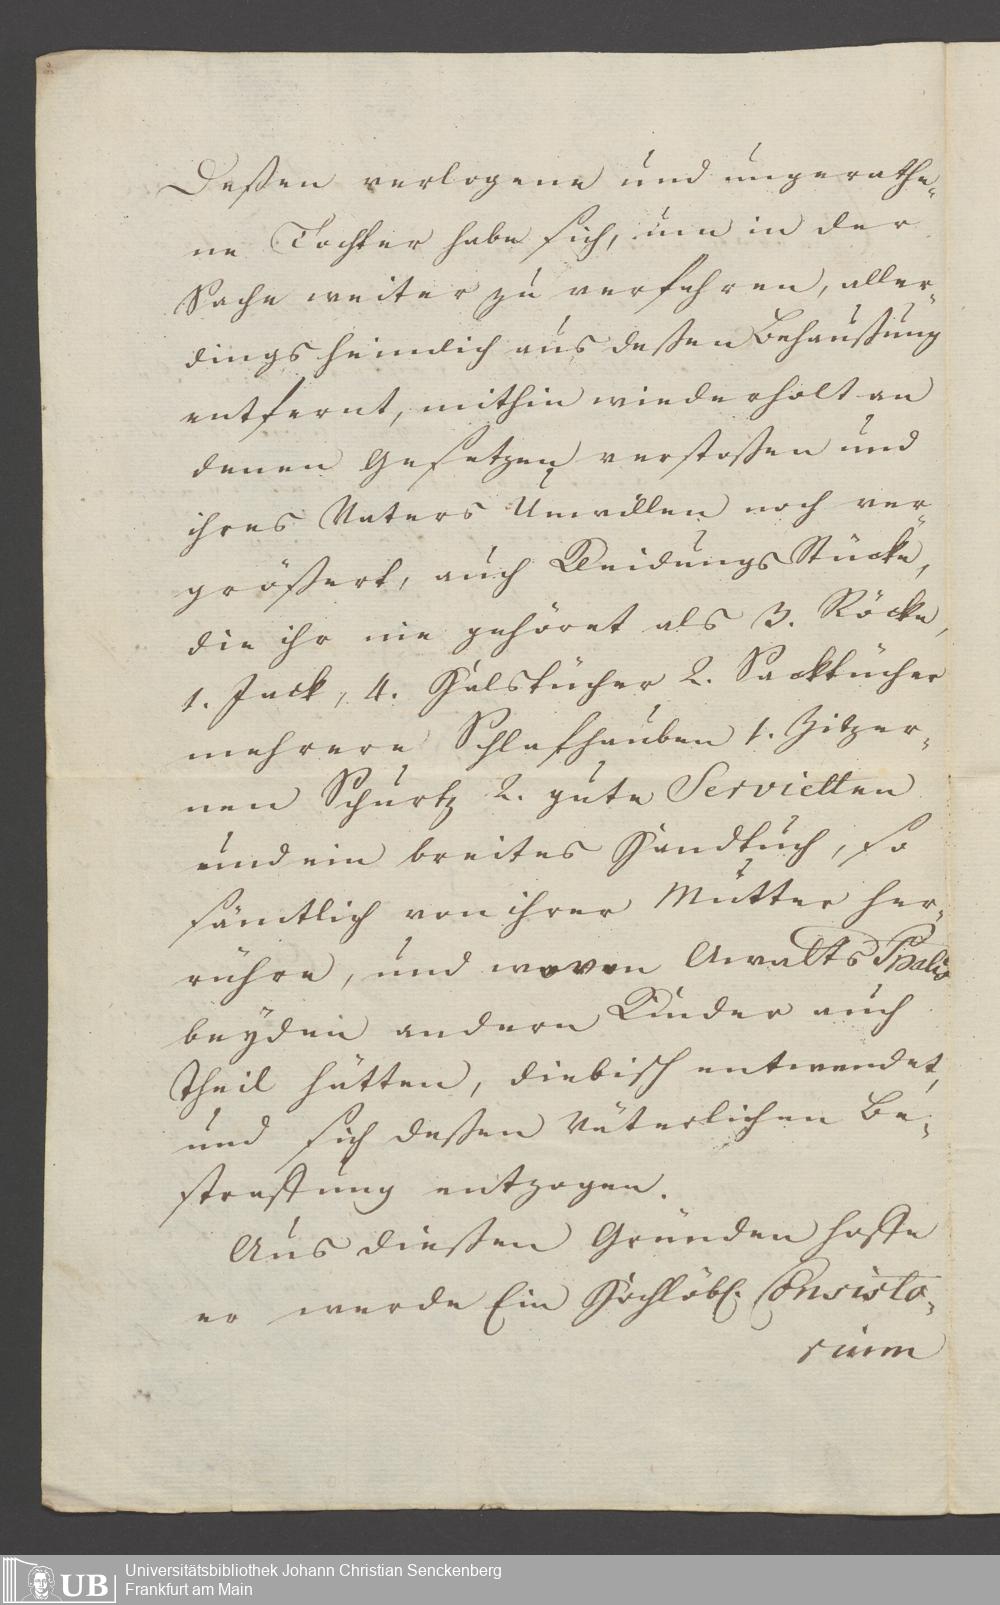 Deßen verlogene und ungerathe-
ne Tochter habe sich, um in der
Sache weiter zu verfahren, aller-
dings heimlich aus deßen Behaußung
entfernt, mithin wiederholt an
denen Gesetzen verstoßen und
ihres Vaters Unwillen noch ver-
größert, auch Kleidungs Stücke,
die ihr nie gehöret als 3. Röcke,
1. Jack, 4. Halstücher 2. Sacktücher
mehrere Schlafhauben 1. Zitzer-
nen Schurtz 2. gute Servietten
und ein breites Handtuch, so
sämtlich von ihrer Mutter her-
rühre, und wovon Anwalts Phalis
beyden andern Kinder auch
Theil hätten, diebisch entwendet,
und sich deßen Väterlichen Be-
straffung entzogen.
Aus dießen Gründen hoffe
er werde Ein Hochlöbl. Consisto-
rium
Universitätsbibliothek Johann Christian Senckenberg
Frankfurt am Main
UB